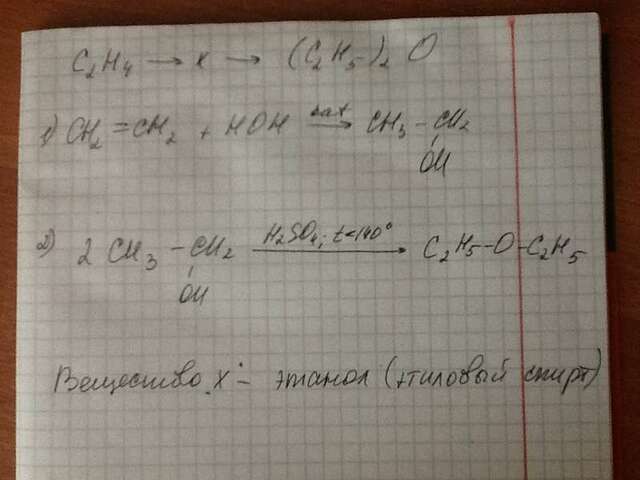 C₂H₄ → x → (C₂H₅)₂O
1) CH₂=CH₂ + HOH kat→ CH₃-CH₂
OH
2) 2 CH₃-CH₂ H₂SO₄; t<140°→ C₂H₅-O-C₂H₅
OH
Вещество "x" - этанол (этиловый спирт)